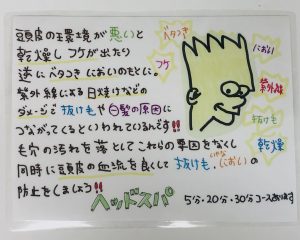 頭皮の環境が悪いと
乾燥しフケが出たり
逆にベタつきにおいのもとに。
紫外線による日焼けなどの
ダメージで抜け毛や白髪の原因に
つながってくるといわれているんです!!
毛穴の汚れを落としてこれらの原因をなくし
同時に頭皮の血流を良くして抜け毛、いやなにおいの
防止をしましょう!!
ヘッドスパ
5分・20分・30分コースあります
ベタつき
におい
フケ
紫外線
抜け毛
乾燥